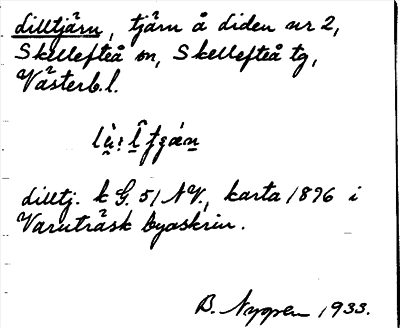 Lilltjärn, tjärn å Liden nr 2,
Skellefteå sn, Skellefteå tg,
Västerb.l.
Lilltj. k G. 51 NV., karta 1896 i
Varuträsk byaskrin.
B. Nygren 1933.